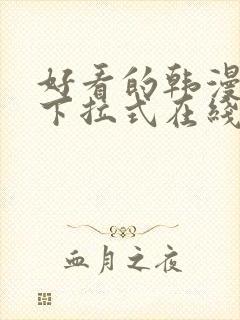 好看的韩漫
下拉式在线
血月之夜